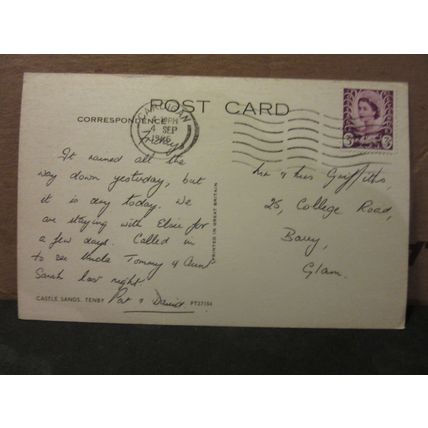 CARDIGAN
PM
4 SEP
POST CARD
CORRESPONDENCE
Friday
It rained all the
way down yesterday, but
it is dry today. We
are staying with Elsie for
a few days. Called in
to see Uncle Tommy & Aun
Sarah last night
Pat & David
CASTLE SANDS, TENBY
PT27154
PRINTED IN GREAT BRITAIN
3D
Mr & Mrs Griffiths
25, College Road,
Barry,
Glam.